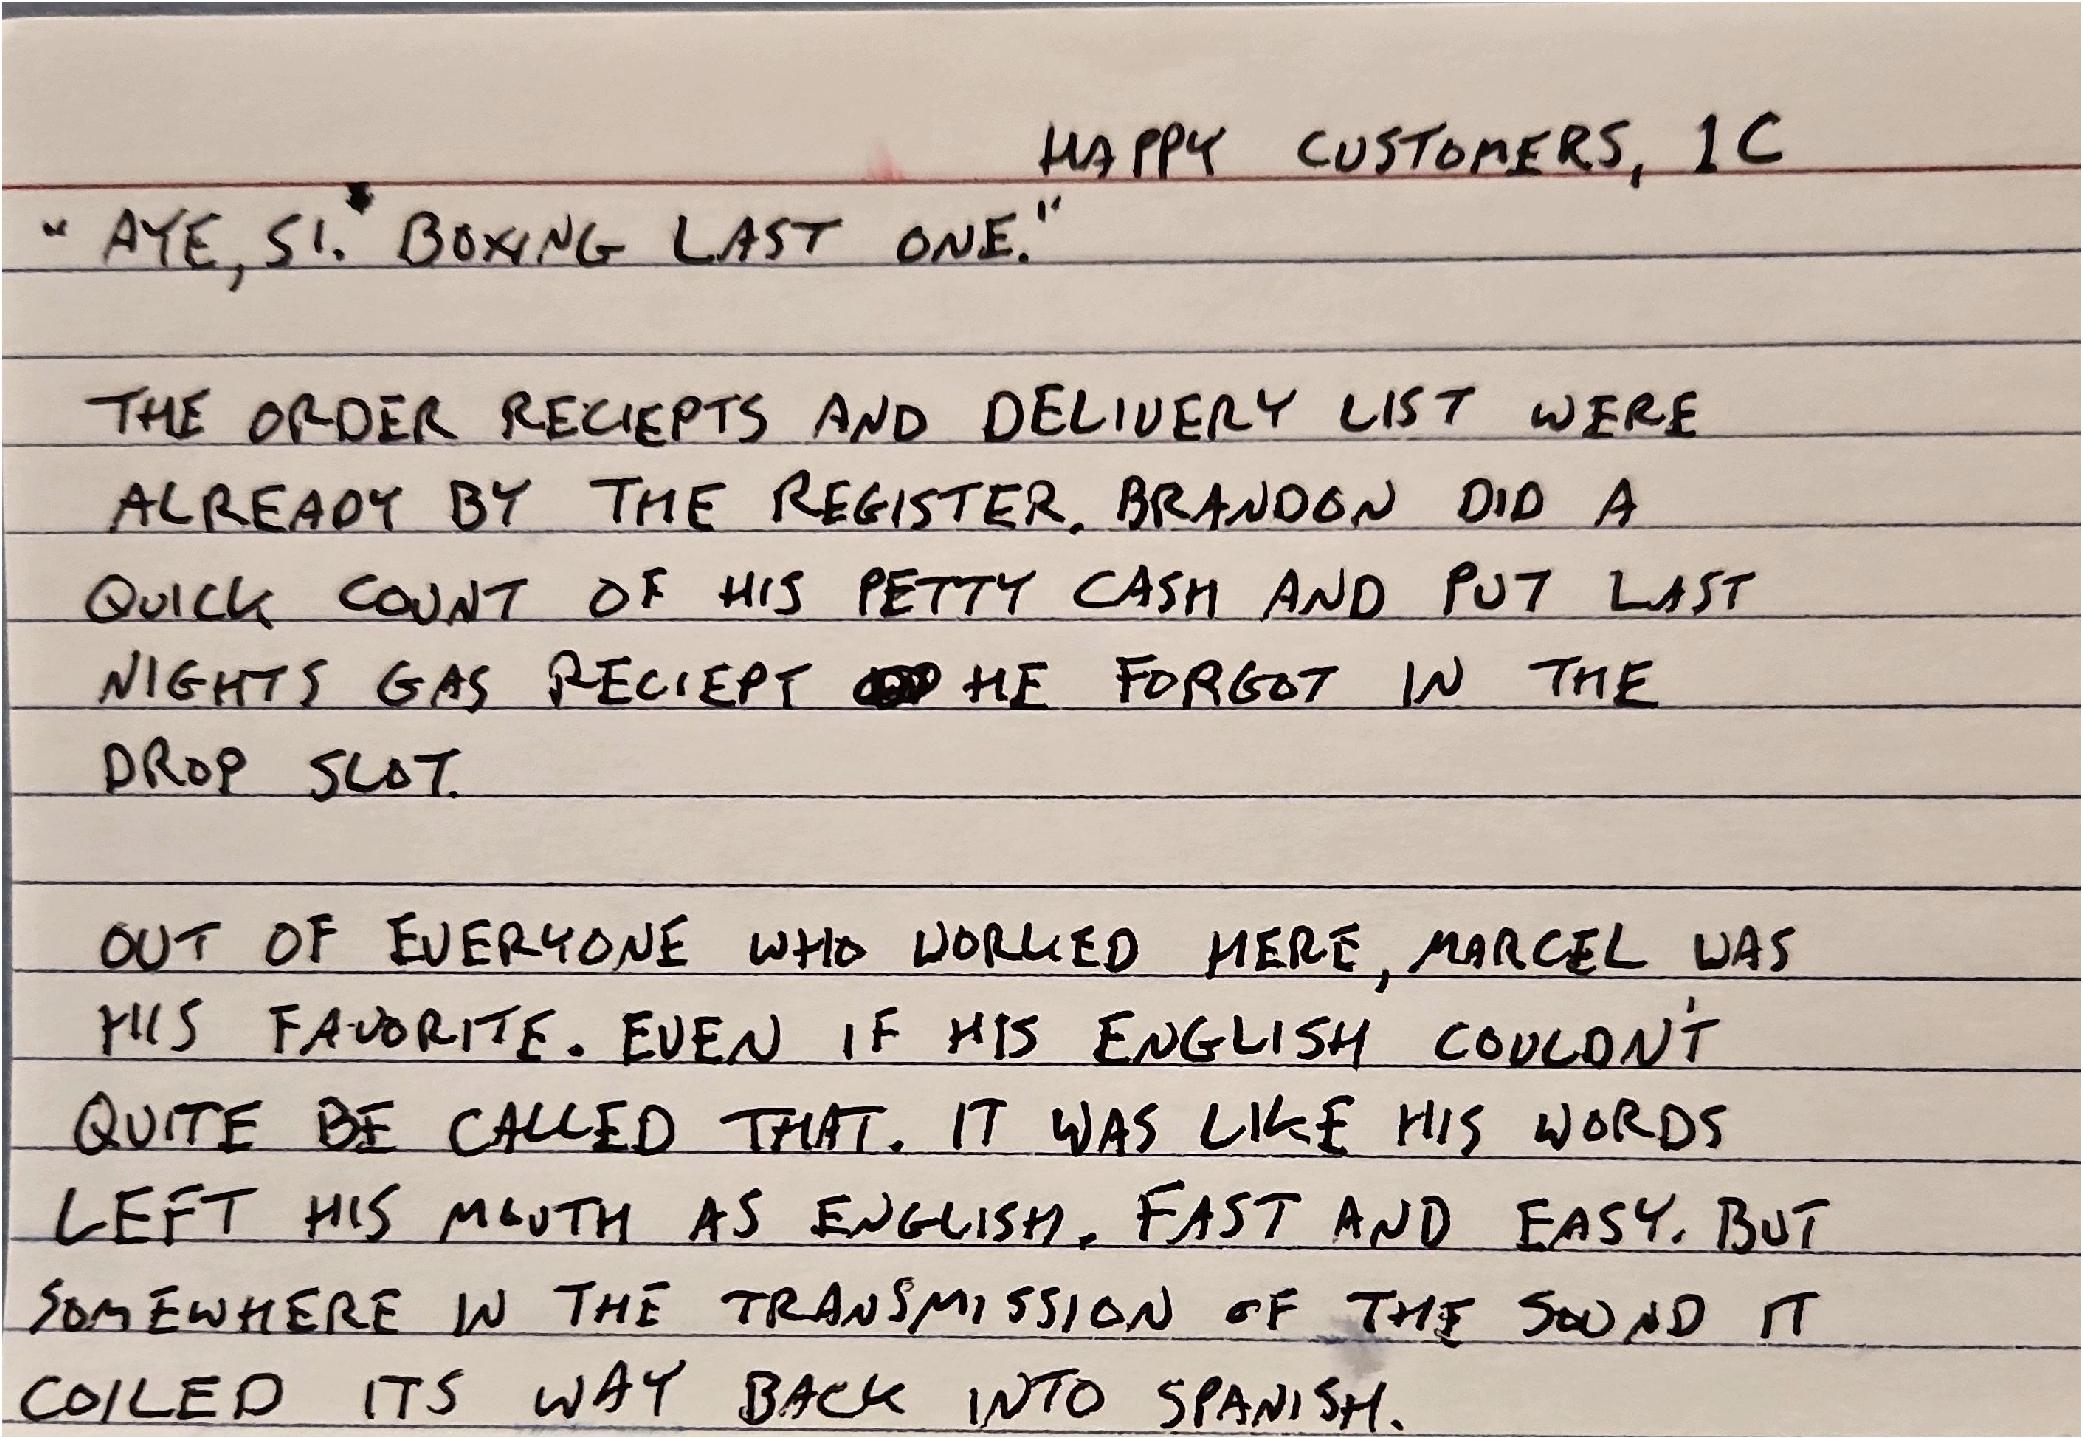 HAPPY CUSTOMERS, 1C
"AYE, SI. BOXING LAST ONE."
THE ORDER RECIEPTS AND DELIVERY LIST WERE
ALREADY BY THE REGISTER. BRANDON DID A
QUICK COUNT OF HIS PETTY CASH AND PUT LAST
NIGHTS GAS RECIEPT HE FORGOT IN THE
DROP SLOT.
OUT OF EVERYONE WHO WORKED HERE, MARCEL WAS
HIS FAVORITE. EVEN IF HIS ENGLISH COULDN'T
QUITE BE CALLED THAT. IT WAS LIKE HIS WORDS
LEFT HIS MOUTH AS ENGLISH. FAST AND EASY. BUT
SOMEWHERE IN THE TRANSMISSION OF THE SOUND IT
COILED ITS WAY BACK INTO SPANISH.